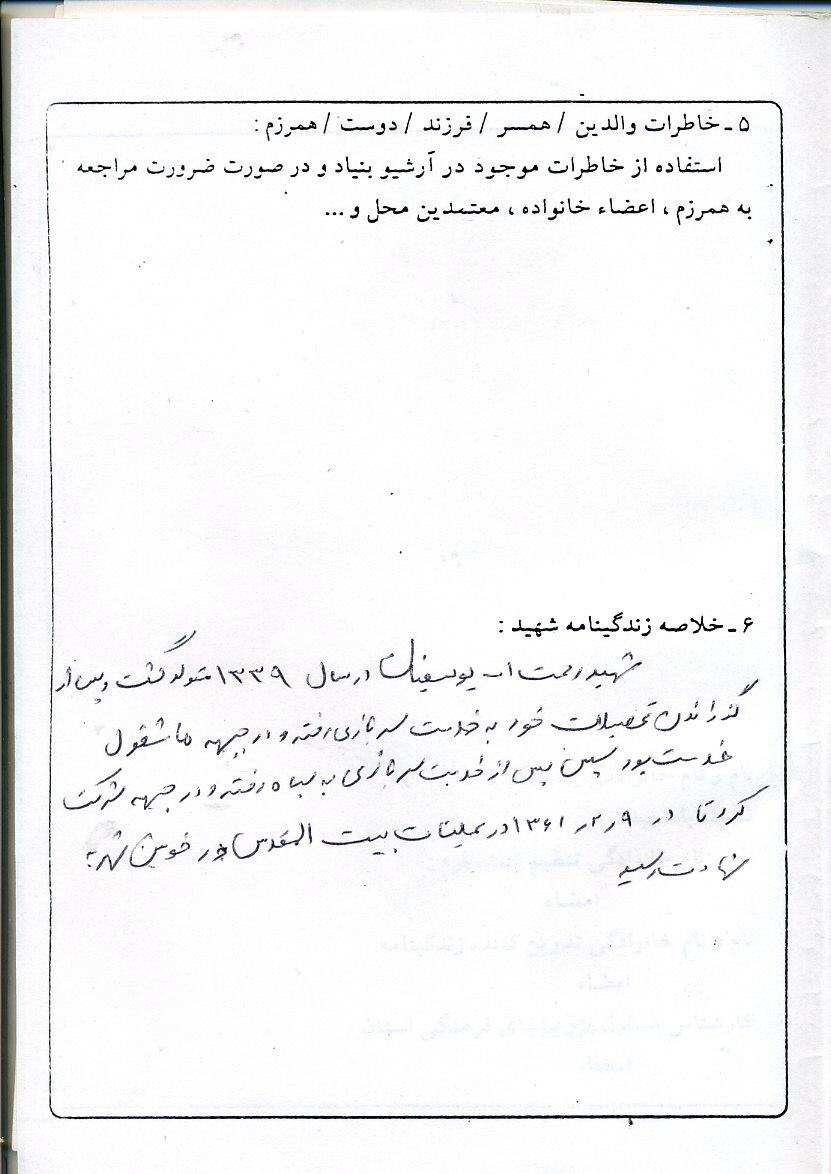 ۵ ـ خاطرات والدین / همسر / فرزند / دوست / همرزم :
استفاده از خاطرات موجود در آرشیو بنیاد و در صورت ضرورت مراجعه
به همرزم ، اعضاء خانواده ، معتمدین محل و ...
۶ ـ خلاصه زندگینامه شهید :
شهید رحمت اله در سال ۱۳۳۹ متولد گشت و پس از
گذراندن تحصیلات خود به خدمت سربازی رفته و در جبهه ها مشغول
خدمت بود سپس پس از خدمت سربازی به سپاه رفته و در جبهه شرکت
کرد تا در ۹ر۲ر۱۳۶۱ در عملیات بیت المقدس در خونین شهر به
شهادت رسید